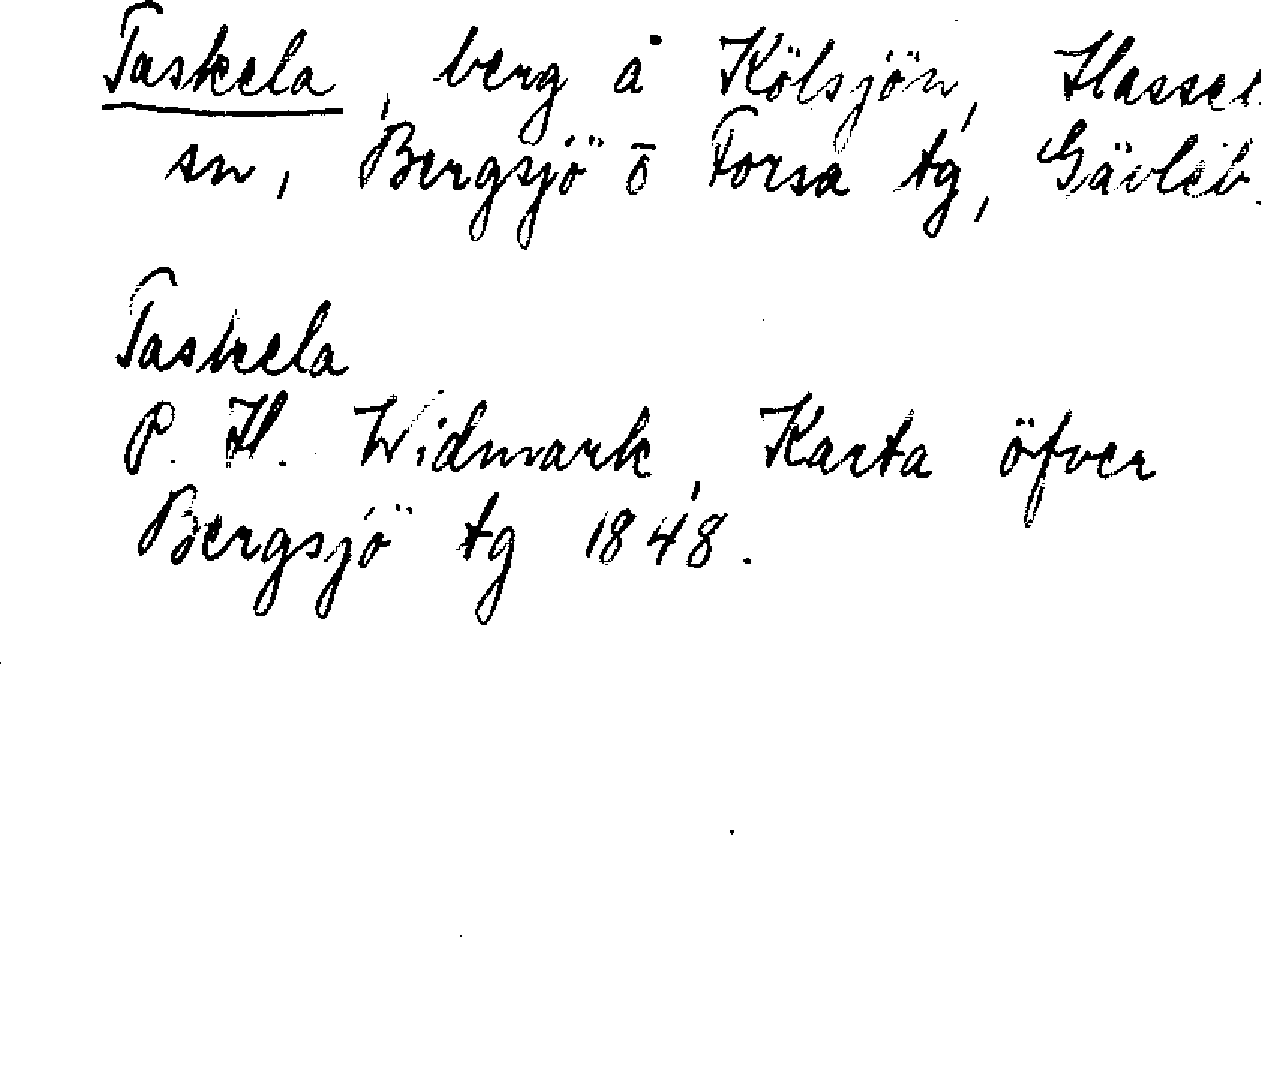 Taskela, berg å Kölsjön, Hassel
sn, Bergsjö o Forsa tg, Gävleb.
Taskela
P. H. Widmark, Karta öfver
Bergsjö tg 1848.